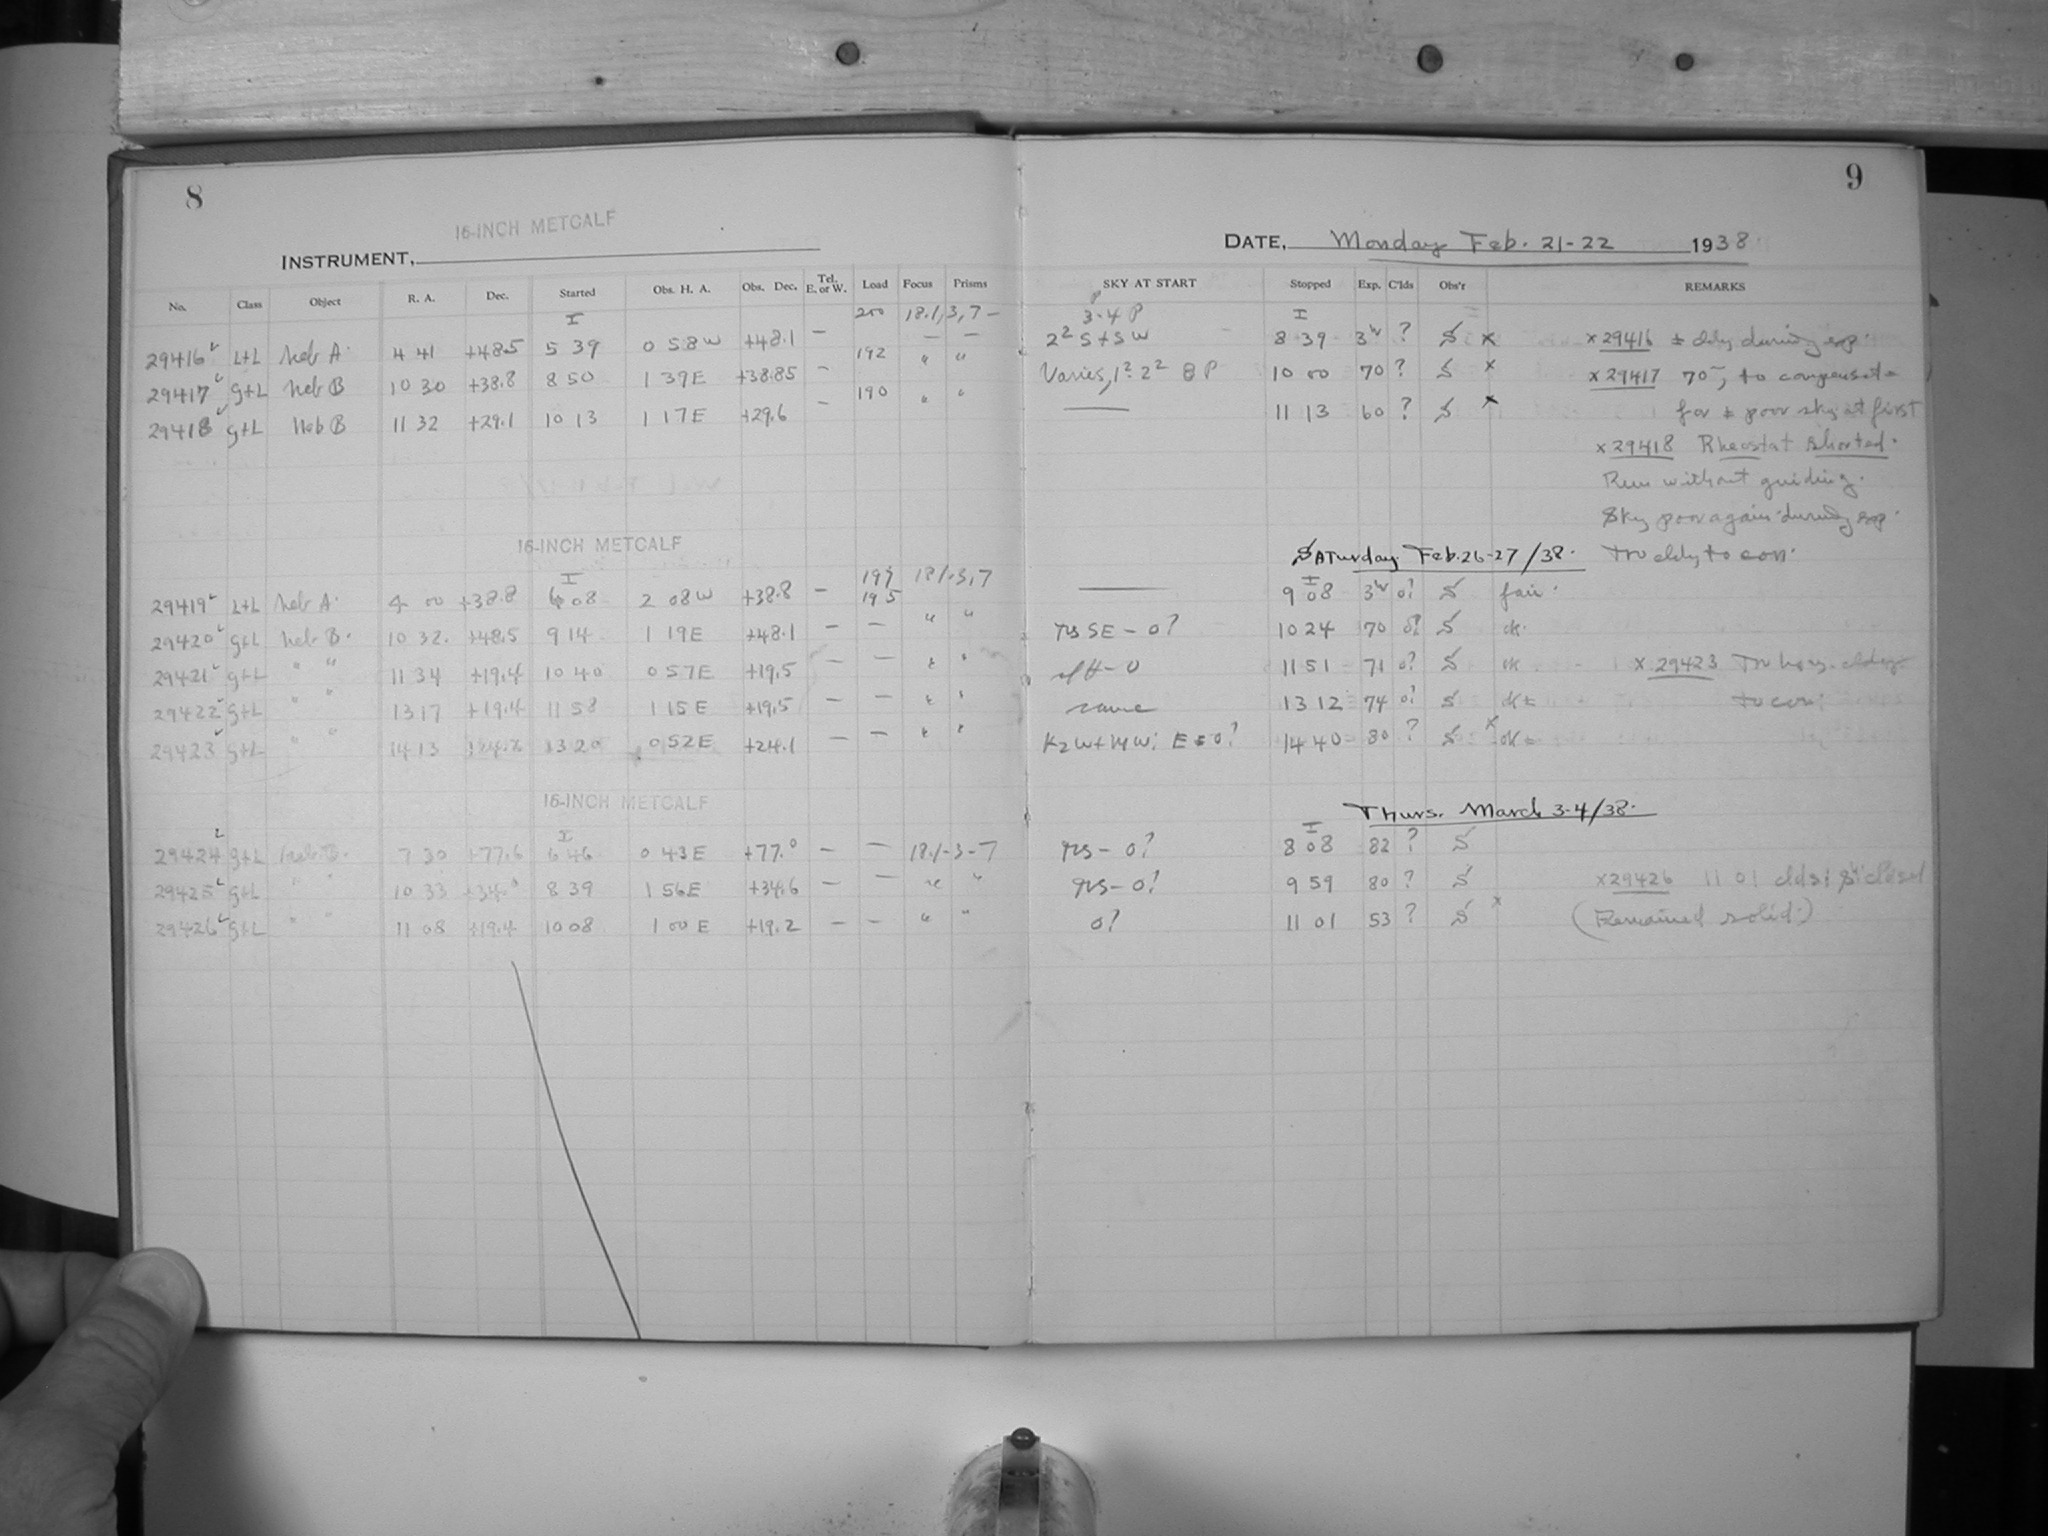 8
9
16-INCH METCALF
INSTRUMENT,
DATE, Monday Feb. 21-22 1938
No. Class Object R. A. Dec. Started Obs. H. A. Obs. Dec. Tel. E. or W. Load Focus Prisms SKY AT START Stopped Exp. C'lds Obs'r REMARKS
I 200 18.1, 3, 7 - 3-4 P I
29416 L+L Neb A 4 41 +48.5 5 39 0 58 W +48.1 — — — 2² S + SW 8 39 3 ? S x x 29416 ± cldy during exp.
29417 g+L Neb B 10 30 +38.8 8 50 1 39 E +38.85 — 192 " " Varies, 1² 2² 8 P 10 00 70 ? S x x 29417 70-, to compensate
29418 g+L Neb B 11 32 +29.1 10 13 1 17 E +29.6 — 190 " " — 11 13 60 ? S x for ± poor sky at first
x 29418 Rheostat shorted.
Run without guiding.
Sky poor again during exp.
16-INCH METCALF
Saturday Feb. 26-27/38. Too cldy to con.
I 18.1-3, 7 I
29419 L+L Neb A. 4 00 +38.8 6 08 2 08 W +38.8 — 195 — 9 08 3 0? S fair.
29420 g+L Neb B. 10 32. +48.5 9 14 1 19 E +48.1 — — " " SE - 0? 10 24 70 0? S ok.
29421 g+L " " 11 34 +19.4 10 40 0 57 E +19.5 — — " " - 0 11 51 71 0? S ok x 29423 cldy
29422 g+L " " 13 17 +19.4 11 58 1 15 E +19.5 — — " " same 13 12 74 0? S ok ± to con.
29423 g+L " " 14 13 13 20 0 52 E +24.1 — — " " 14 40 80 ? S x ok ±
16-INCH METCALF
Thurs. March 3-4/38.
I I
29424 g+L Neb B. 7 30 +77.6 6 46 0 43 E +77.0 — — 18.1-3-7 - 0? 8 08 82 ? S
29425 g+L " " 10 33 8 39 1 56 E +34.6 — — " " - 0? 9 59 80 ? S x 29426 11 01 clds;
29426 g+L " " 11 08 +19.4 10 08 1 00 E +19.2 — — " " 0? 11 01 53 ? S x (Remained solid.)